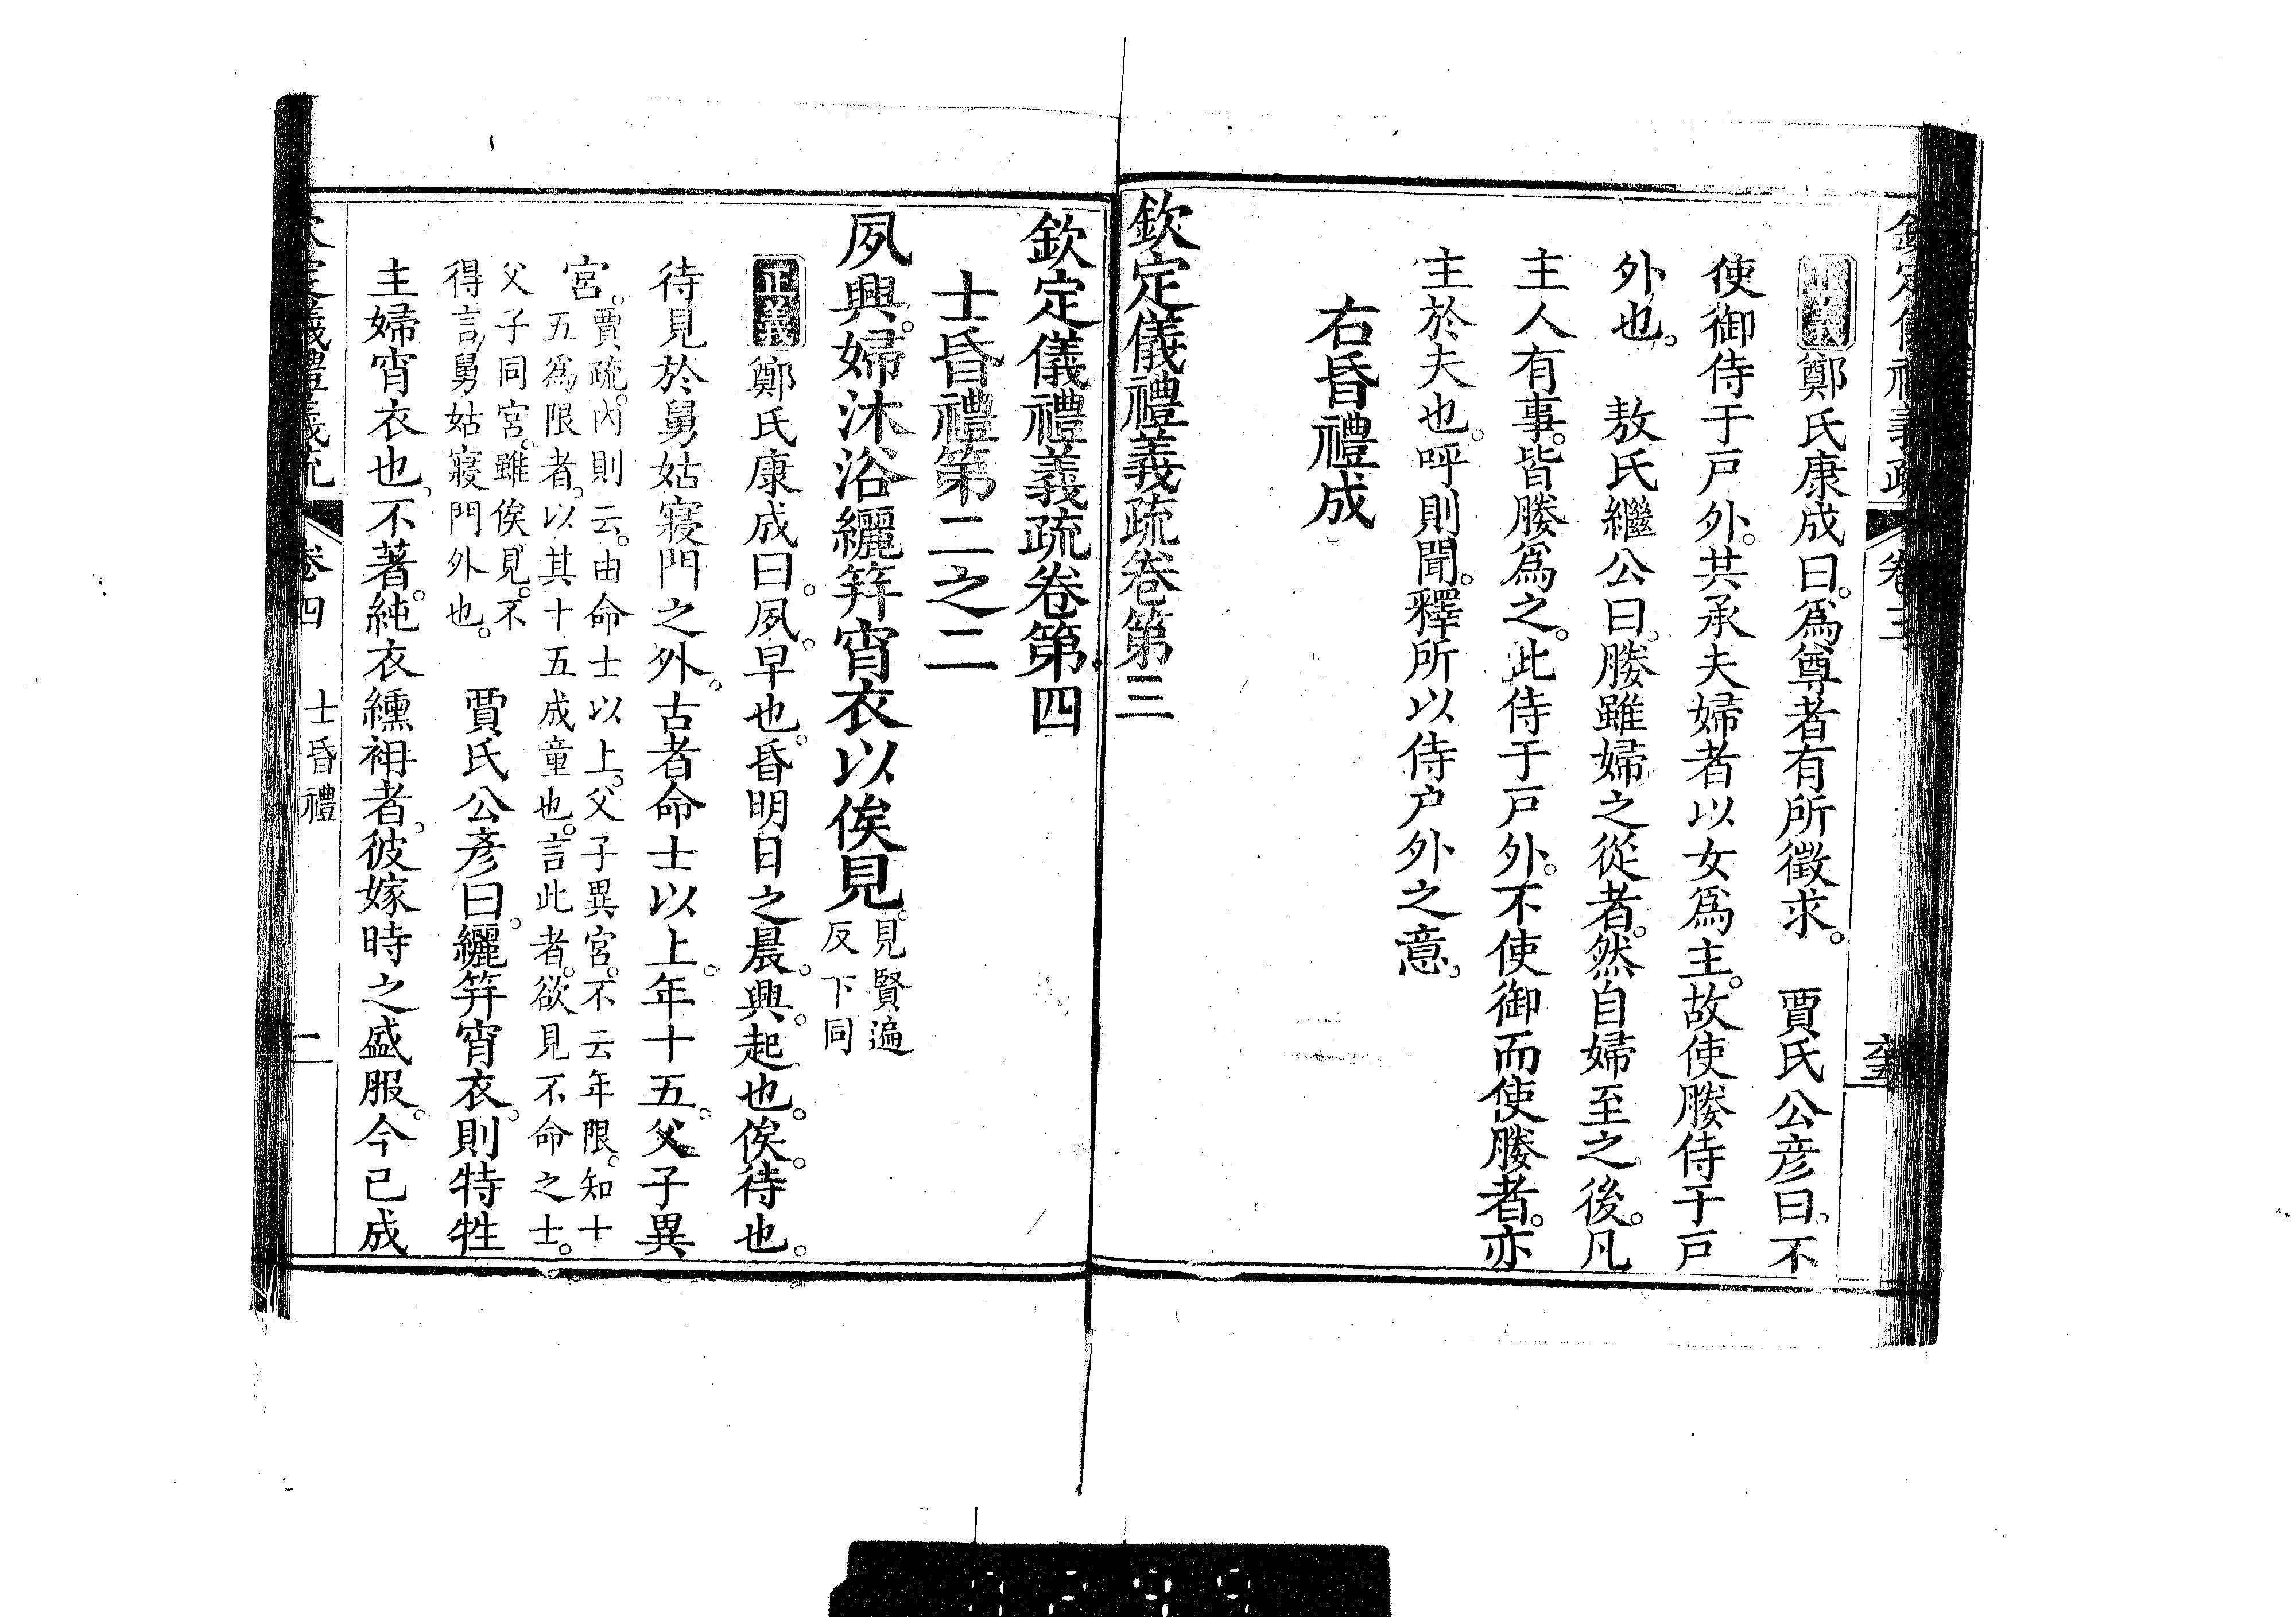 正義鄭氏康成曰。爲尊者有所徵求。　賈氏公彦曰。不
使御侍于戸外。其承夫婦者以女爲主。故使媵侍于戸
外也。　敖氏繼公曰。媵雖婦之從者。然自婦至之後。凡
主人有事。皆媵爲之。此侍于戸外。不使御而使媵者。亦
主於夫也。呼則聞。釋所以侍户外之意。
右昏禮成
欽定儀禮義疏卷第三
欽定儀禮義疏卷第四
士昏禮第二之二
夙興。婦沐浴纚笄宵衣以俟見。見賢遍
反下同
正義鄭氏康成曰。夙。早也。昏明日之晨。興。起也。俟。待也。
待見於舅姑寢門之外。古者命士以上。年十五。父子異
宮。賈疏。內則云。由命士以上。父子異宮。不云年限。知十
五爲限者。以其十五成童也。言此者。欲見不命之士。
父子同宮。雖俟見。不
得言舅姑寢門外也。　賈氏公彥曰。纚笄宵衣。則特牲
主婦宵衣也。不著純衣纁袡者。彼嫁時之盛服。今已成
卷四　士昏禮　一